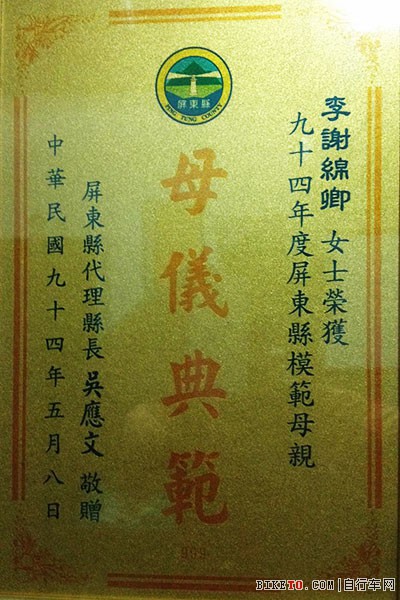 屏東縣
PING TUNG COUNTY
李謝綿卿 女士榮獲
九十四年度屏東縣模範母親
母儀典範
屏東縣代理縣長 吳應文 敬贈
中華民國九十四年五月八日
BIKETO.COM|自行车网